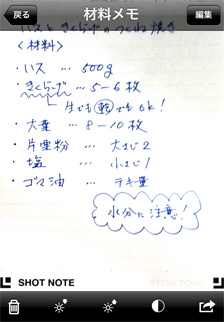 戻る 材料メモ 編集
ハスときくらげのつくね焼き
〈材料〉
・ハス … 500g
・きくらげ … 5–6枚
生でも乾でもok!
・大葉 … 8–10枚
・片栗粉 … 大さじ2
・塩 … 小さじ1
・ゴマ油 … テキ量
水分に注意!
SHOT NOTE